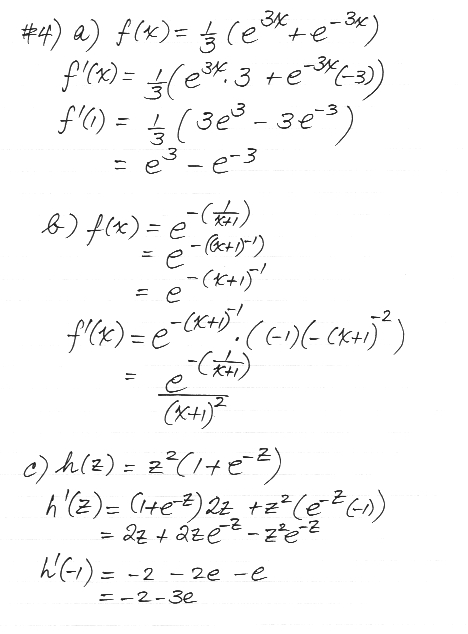 #4) a) f(x) = 1/3 (e^{3x} + e^{-3x})
f'(x) = 1/3 (e^{3x} · 3 + e^{-3x}(-3))
f'(1) = 1/3 (3e^3 - 3e^{-3})
= e^3 - e^{-3}
b) f(x) = e^{-(1/(x+1))}
= e^{-((x+1)^{-1})}
= e^{-(x+1)^{-1}}
f'(x) = e^{-(x+1)^{-1}} · ((-1)(-(x+1)^{-2})
= e^{-(1/(x+1))} / (x+1)^2
c) h(z) = z^2(1+e^{-z})
h'(z) = (1+e^{-z})2z + z^2(e^{-z}(-1))
= 2z + 2ze^{-z} - z^2e^{-z}
h'(-1) = -2 - 2e - e
= -2 - 3e